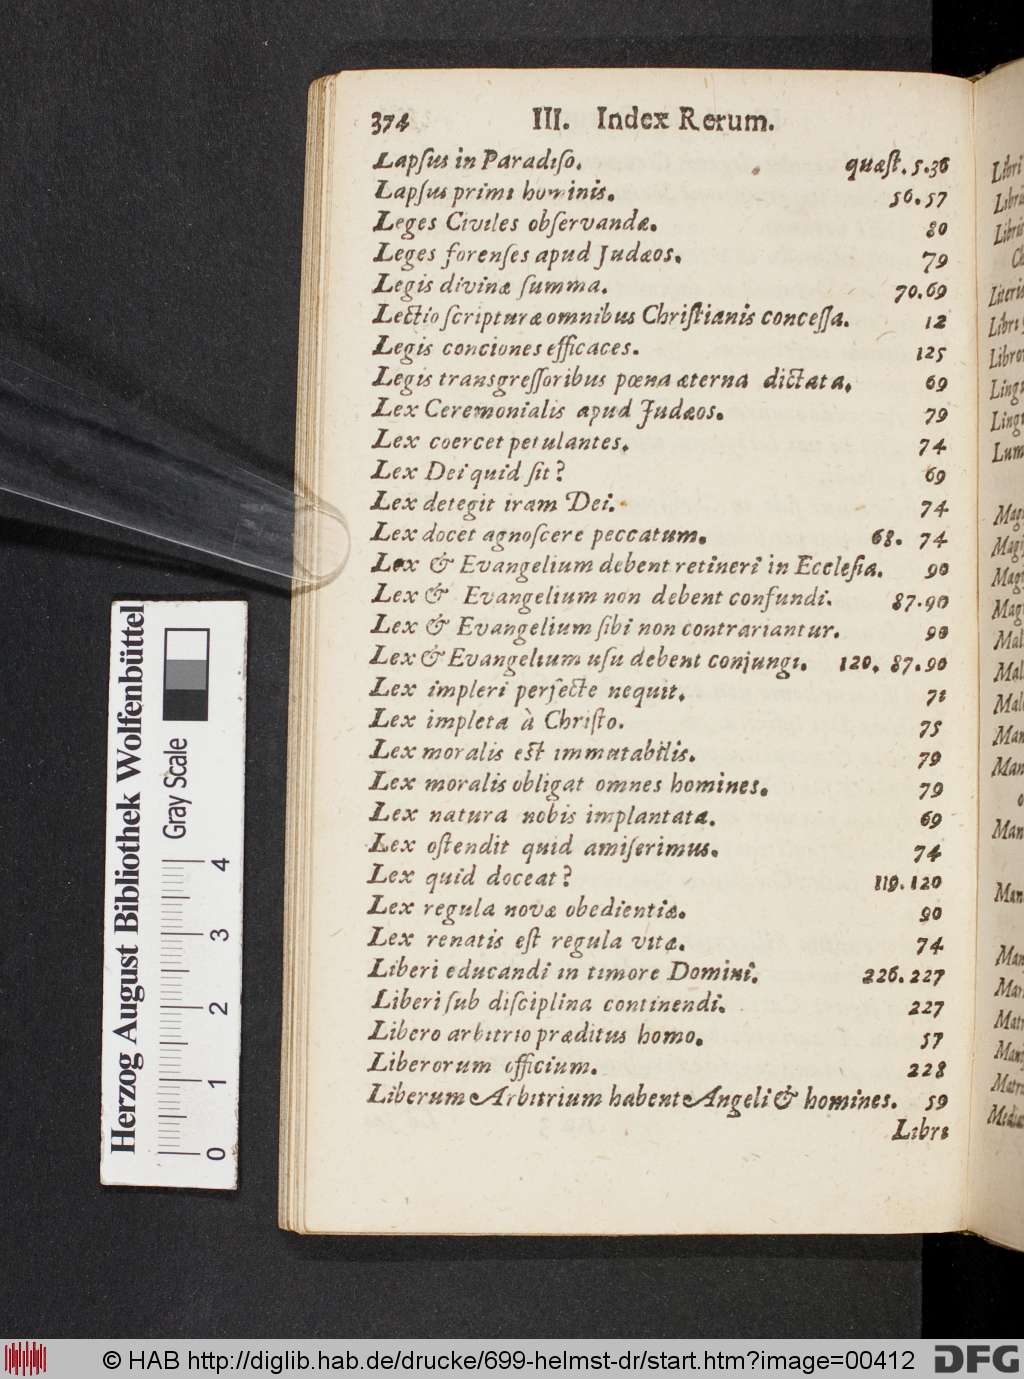 374 III. Index Rerum.
Lapſus in Paradiſo. quæſt. 5.36
Lapſus primi hominis. 56.57
Leges Civiles obſervandæ. 80
Leges forenſes apud Judæos. 79
Legis divinæ ſumma. 70.69
Lectio ſcripturæ omnibus Chriſtianis conceſſa. 12
Legis conciones efficaces. 125
Legis transgreſſoribus pœna æterna dictata. 69
Lex Ceremonialis apud Judæos. 79
Lex coercet petulantes. 74
Lex Dei quid ſit? 69
Lex detegit iram Dei. 74
Lex docet agnoſcere peccatum. 68. 74
Lex & Evangelium debent retineri in Eccleſia. 90
Lex & Evangelium non debent confundi. 87.90
Lex & Evangelium ſibi non contrariantur. 90
Lex & Evangelium uſu debent conjungi. 120. 87.90
Lex impleri perfecte nequit. 71
Lex impleta à Chriſto. 75
Lex moralis eſt immutabilis. 79
Lex moralis obligat omnes homines. 79
Lex natura nobis implantata. 69
Lex oſtendit quid amiſerimus. 74
Lex quid doceat? 119.120
Lex regula novæ obedientiæ. 90
Lex renatis eſt regula vitæ. 74
Liberi educandi in timore Domini. 226.227
Liberi ſub diſciplina continendi. 227
Libero arbitrio præditus homo. 57
Liberorum officium. 228
Liberum Arbitrium habent Angeli & homines. 59
Libri
Libri
Libri
Lum
Mal
Mal
Man
Man
Man
Man
Herzog August Bibliothek Wolfenbüttel
Gray Scale
0 1 2 3 4
© HAB http://diglib.hab.de/drucke/699-helmst-dr/start.htm?image=00412
DFG